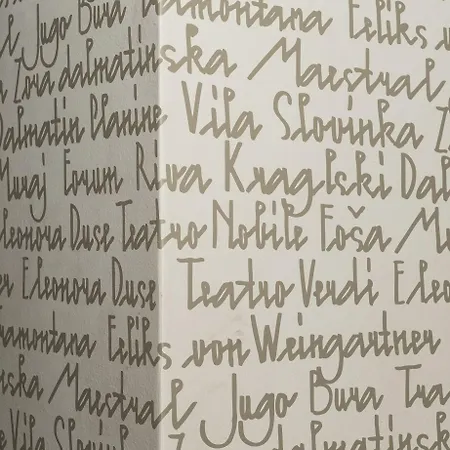 Jugo Bura Tramontana Feliks v
Zora dalmatinska Maestral
Dalmatin Planine Vila Slovinka Z
Muraj Forum Riva Kraglski Dal
Eleonora Duse Teatro Nobile Foša Mu
er Eleonora Duse Teatro Verdi Eleo
Tramontana Feliks von Weingartner
nska Maestral Jugo Bura Tra
e Vila Slovinka Z dalmatinsk